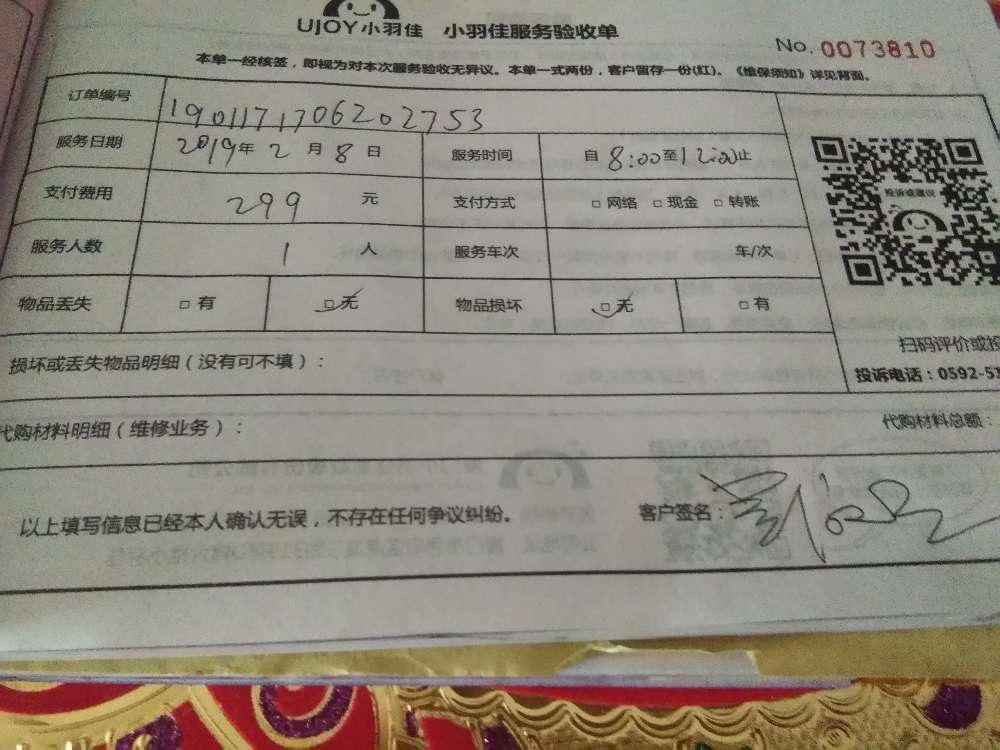 UJOY小羽佳 小羽佳服务验收单
No. 0073810
本单一经核签，即视为对本次服务验收无异议。本单一式两份，客户留存一份(红)。《维保须知》详见背面。
订单编号 190117170620 2753
服务日期 2019年 2 月 8 日 服务时间 自 8:00至12:00止
支付费用 299 元 支付方式 □ 网络 □ 现金 □ 转账
服务人数 1 人 服务车次 车/次
物品丢失 □ 有 □ 无 物品损坏 □ 无 □ 有
投诉或建议
扫码评价或投
投诉电话：0592-5
损坏或丢失物品明细（没有可不填）：
代购材料明细（维修业务）： 代购材料总额：
以上填写信息已经本人确认无误，不存在任何争议纠纷。 客户签名：